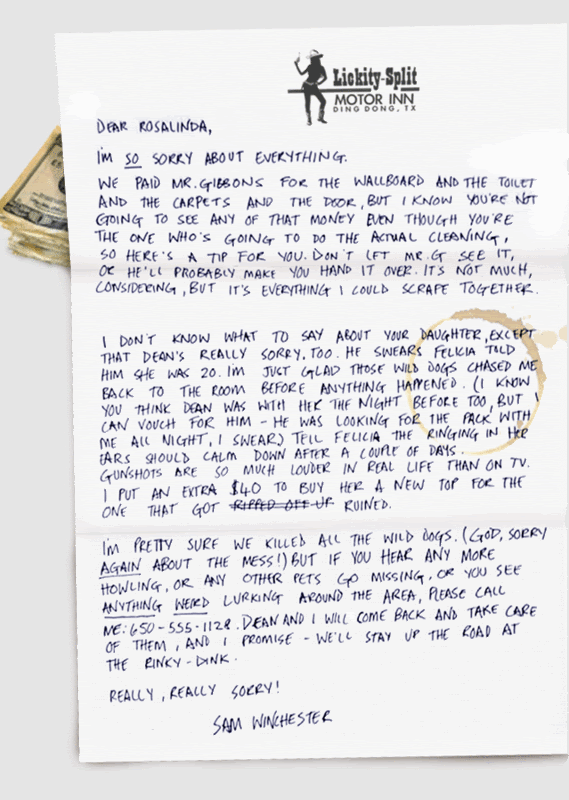 Lickity-Split
MOTOR INN
DING DONG, TX
DEAR ROSALINDA,
I'M SO SORRY ABOUT EVERYTHING.
WE PAID MR. GIBBONS FOR THE WALLBOARD AND THE TOILET
AND THE CARPETS AND THE DOOR, BUT I KNOW YOU'RE NOT
GOING TO SEE ANY OF THAT MONEY EVEN THOUGH YOU'RE
THE ONE WHO'S GOING TO DO THE ACTUAL CLEANING,
SO HERE'S A TIP FOR YOU. DON'T LET MR. G SEE IT,
OR HE'LL PROBABLY MAKE YOU HAND IT OVER. IT'S NOT MUCH,
CONSIDERING, BUT IT'S EVERYTHING I COULD SCRAPE TOGETHER.
I DON'T KNOW WHAT TO SAY ABOUT YOUR DAUGHTER, EXCEPT
THAT DEAN'S REALLY SORRY, TOO. HE SWEARS FELICIA TOLD
HIM SHE WAS 20. I'M JUST GLAD THOSE WILD DOGS CHASED ME
BACK TO THE ROOM BEFORE ANYTHING HAPPENED. (I KNOW
YOU THINK DEAN WAS WITH HER THE NIGHT BEFORE TOO, BUT I
CAN VOUCH FOR HIM - HE WAS LOOKING FOR THE PACK WITH
ME ALL NIGHT, I SWEAR) TELL FELICIA THE RINGING IN HER
EARS SHOULD CALM DOWN AFTER A COUPLE OF DAYS.
GUNSHOTS ARE SO MUCH LOUDER IN REAL LIFE THAN ON TV.
I PUT AN EXTRA $40 TO BUY HER A NEW TOP FOR THE
ONE THAT GOT RIPPED OFF UP RUINED.
I'M PRETTY SURE WE KILLED ALL THE WILD DOGS. (GOD, SORRY
AGAIN ABOUT THE MESS!) BUT IF YOU HEAR ANY MORE
HOWLING, OR ANY OTHER PETS GO MISSING, OR YOU SEE
ANYTHING WEIRD LURKING AROUND THE AREA, PLEASE CALL
ME: 650-555-1128. DEAN AND I WILL COME BACK AND TAKE CARE
OF THEM, AND I PROMISE - WE'LL STAY UP THE ROAD AT
THE RINKY-DINK.
REALLY, REALLY SORRY!
SAM WINCHESTER